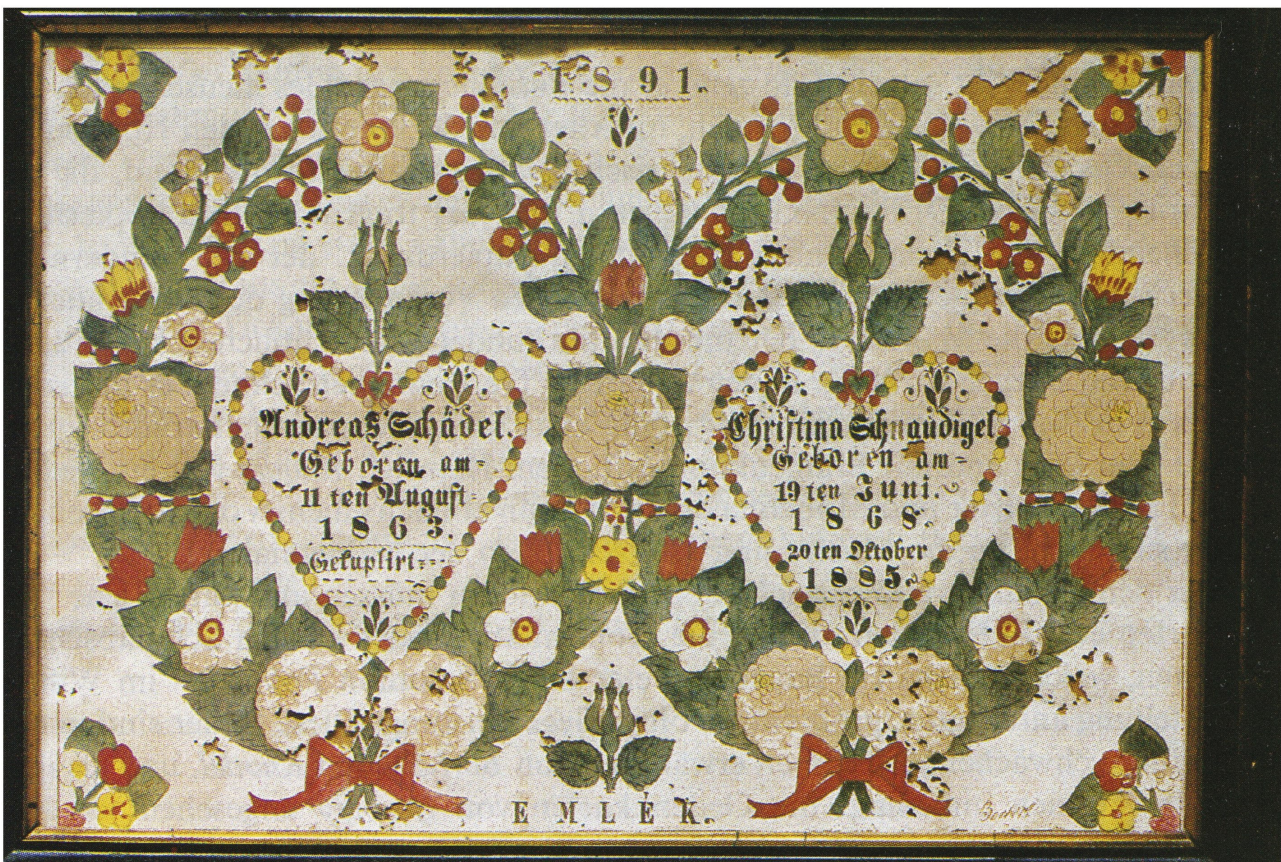 1891.
Andreas Schädel.
Geboren am=
11 ten August
1863.
Gekuplirt=
Christina Schnaudigel
Geboren am=
19 ten Juni.
1868.
20 ten Oktober
1885.
EMLÉK.